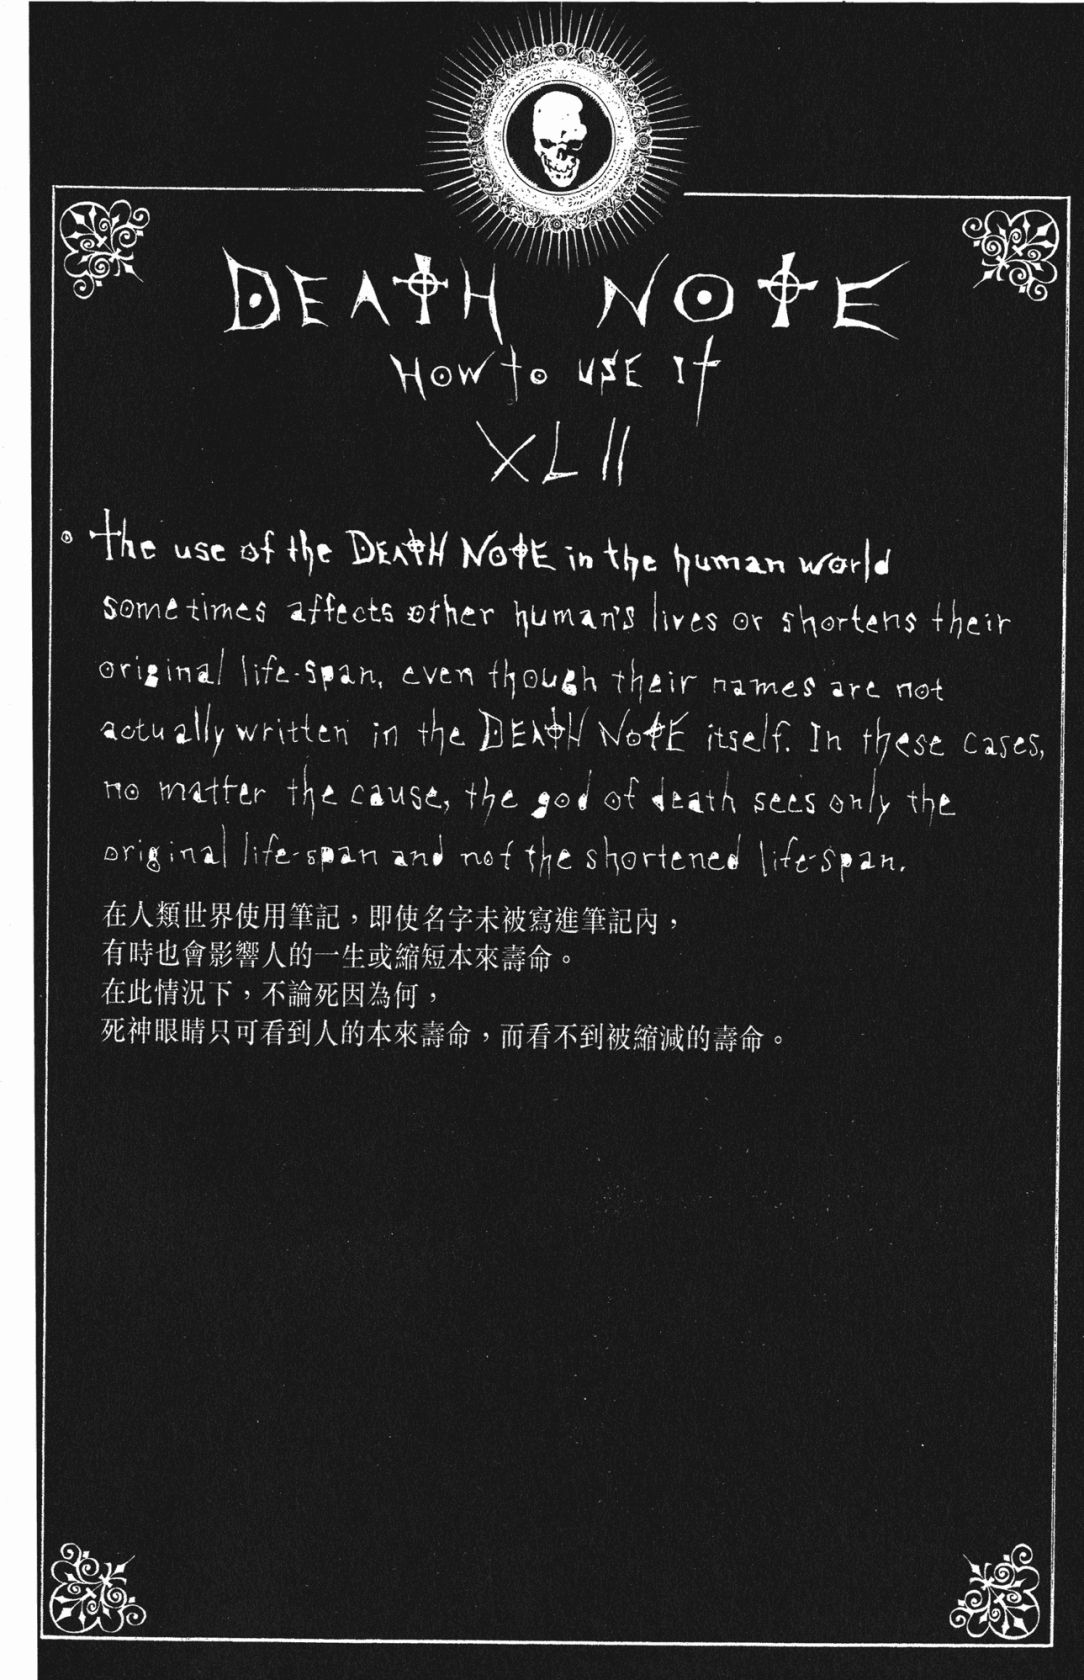 DEATH NOTE
HOW to USE It
XLII
The use of the DEATH NOTE in the human world
sometimes affects other human's lives or shortens their
original life-span, even though their names are not
actually written in the DEATH NOTE itself. In these cases,
no matter the cause, the god of death sees only the
original life-span and not the shortened life-span.
在人類世界使用筆記，即使名字未被寫進筆記內，
有時也會影響人的一生或縮短本來壽命。
在此情況下，不論死因為何，
死神眼睛只可看到人的本來壽命，而看不到被縮減的壽命。